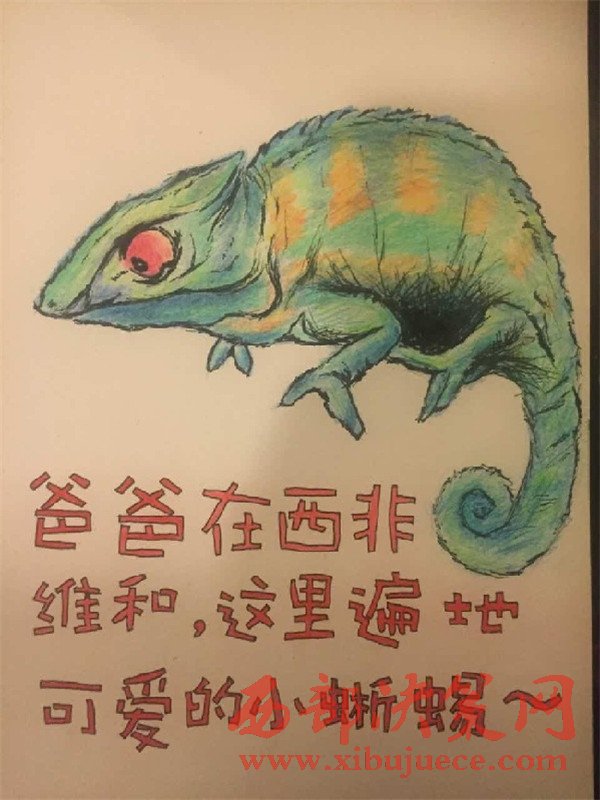 爸爸在西非
维和,这里遍地
可爱的小蜥蜴~
西部决策网
www.xibujuece.com